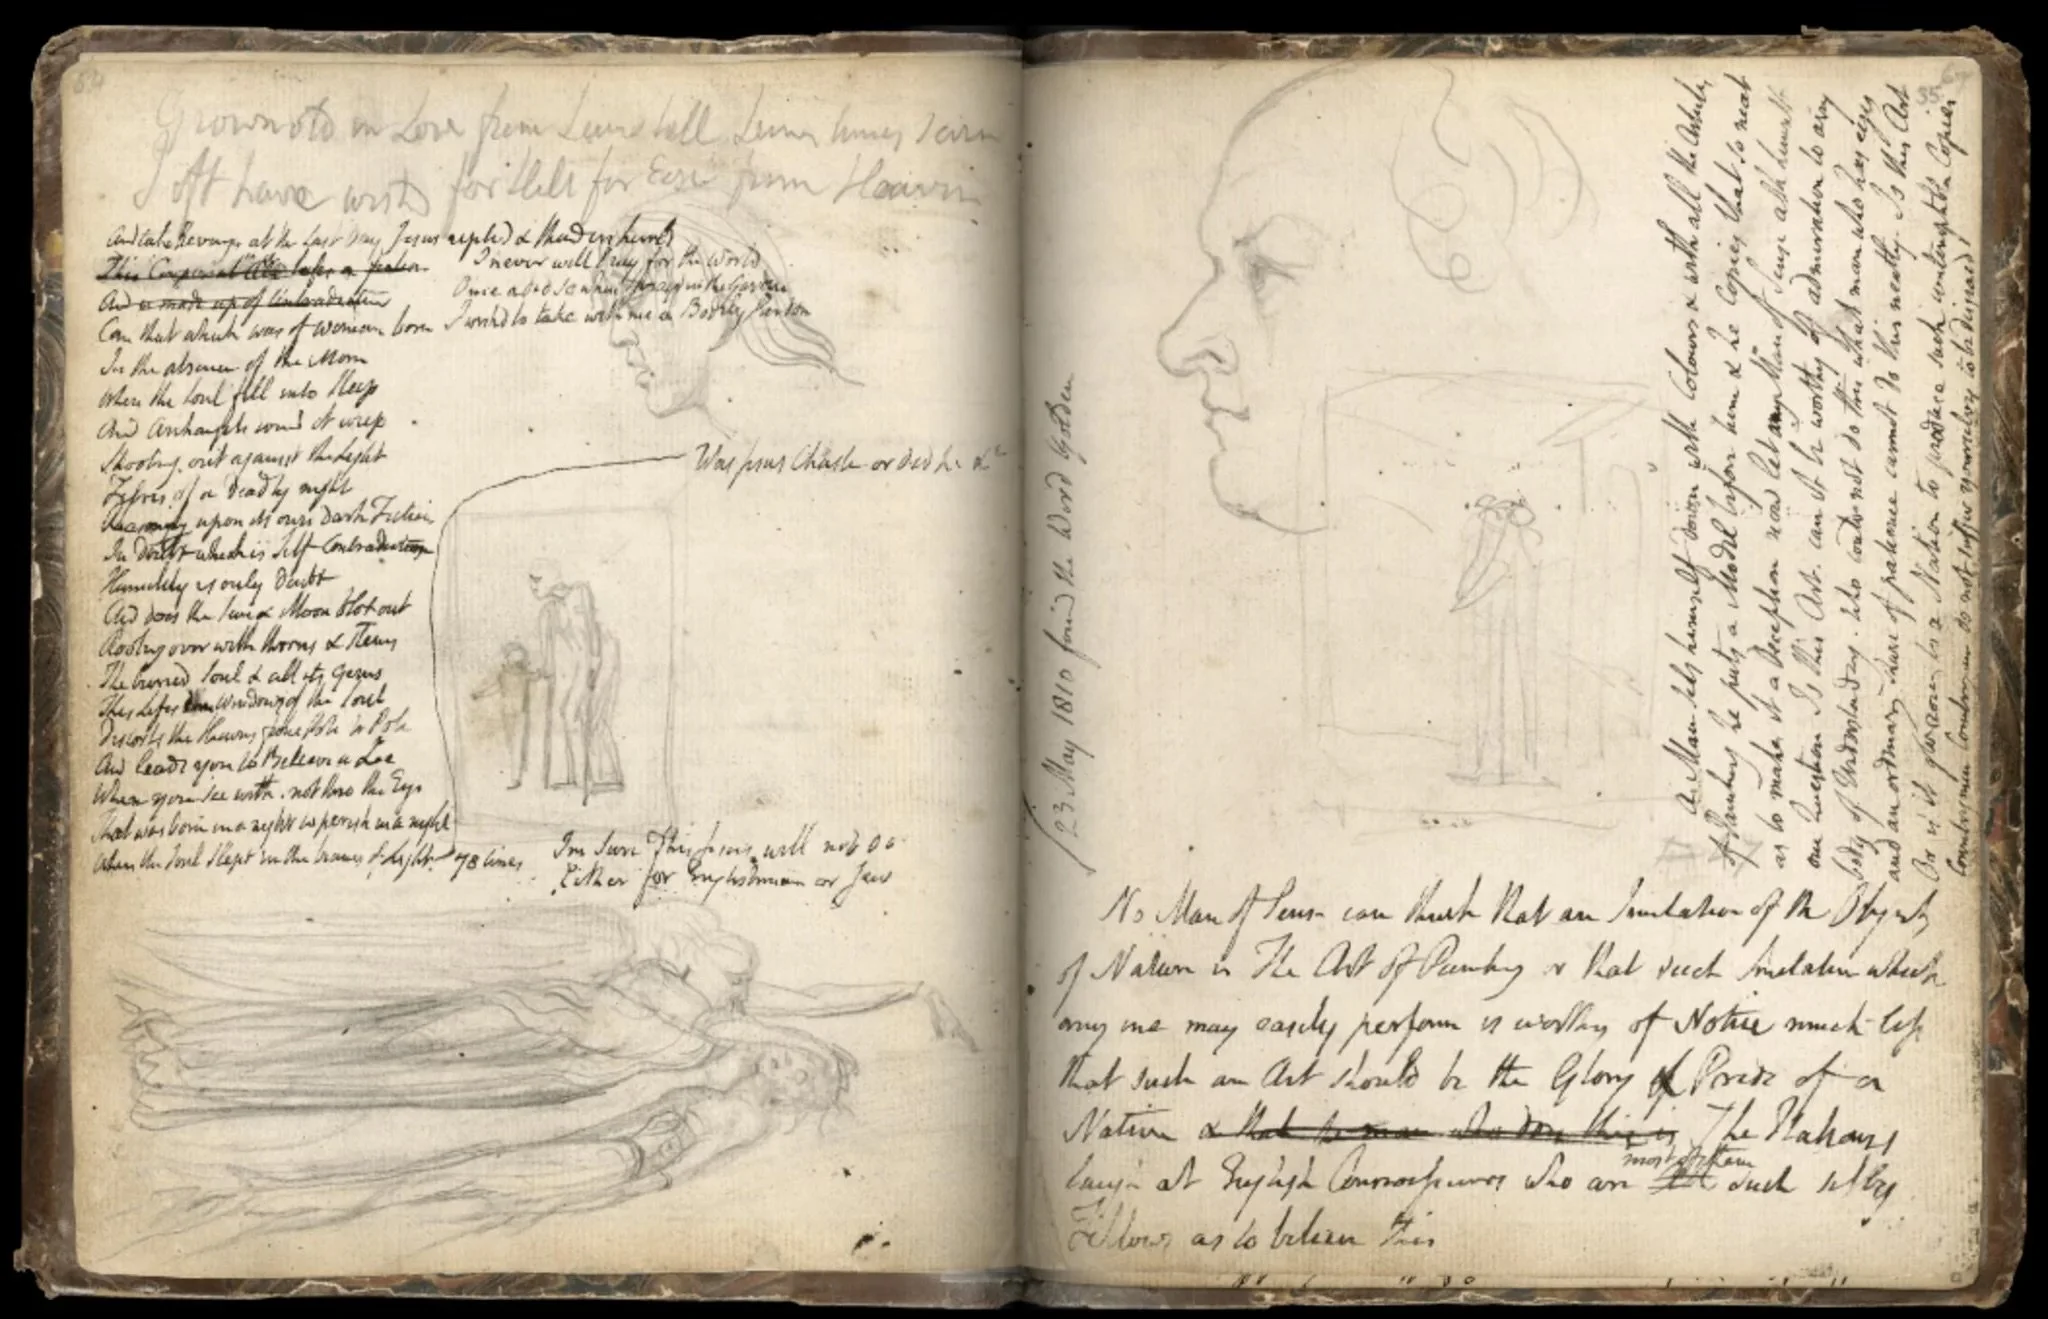 54
Grown old in Love from Seven till Seven times Seven
I oft have wishd for Hell for Ease from Heaven
And take Revenge at the Last Day Jesus replied & thunders hurld
I never will Pray for the World
Once I did so when I prayd in the Garden
I wishd to take with me a Bodily Pardon
This Corporeal life's a fiction
And is made up of Contradiction
Can that which was of woman born
In the absence of the Morn
When the Soul fell into Sleep
And Archangels round it weep
Shooting out against the Light
Fibres of a deadly night
Reasoning upon its own Dark Fiction
In Doubt which is Self Contradiction
Humility is only Doubt
And does the Sun & Moon blot out
Rooting over with thorns & stems
The buried Soul & all its Gems
This Lifes Windows of the Soul
Distorts the Heavens from Pole to Pole
And leads you to Believe a Lie
When you see with not thro the Eye
That was born in a night to perish in a night
When the Soul slept in the beams of Light. 78 lines
Was Jesus Chaste or did he &c
Im sure This Jesus will not do
Either for Englishman or Jew
55
23 May 1810 found the Word Golden
A Man sets himself down with Colours & with all the Articles
of Painting he puts a Model before him & he Copies that so neat
as to make it a Deception now let any Man of Sense ask himself
one Question Is this Art. can it be worthy of admiration to any
body of Understanding. Who could not do this what man who has eyes
and an ordinary share of patience cannot do this neatly. Is this Art
Or is it glorious to a Nation to produce such contemptible Copies
Countrymen Countrymen do not suffer yourselves to be disgraced
No Man of Sense can think that an Imitation of the Objects
of Nature is The Art of Painting or that such Imitation which
any one may easily perform is worthy of Notice much less
that such an Art should be the Glory & Pride of a
Nation & that the man who does this is The Italians
laugh at English Connoisseurs who are most of them such silly
Fellows as to believe this